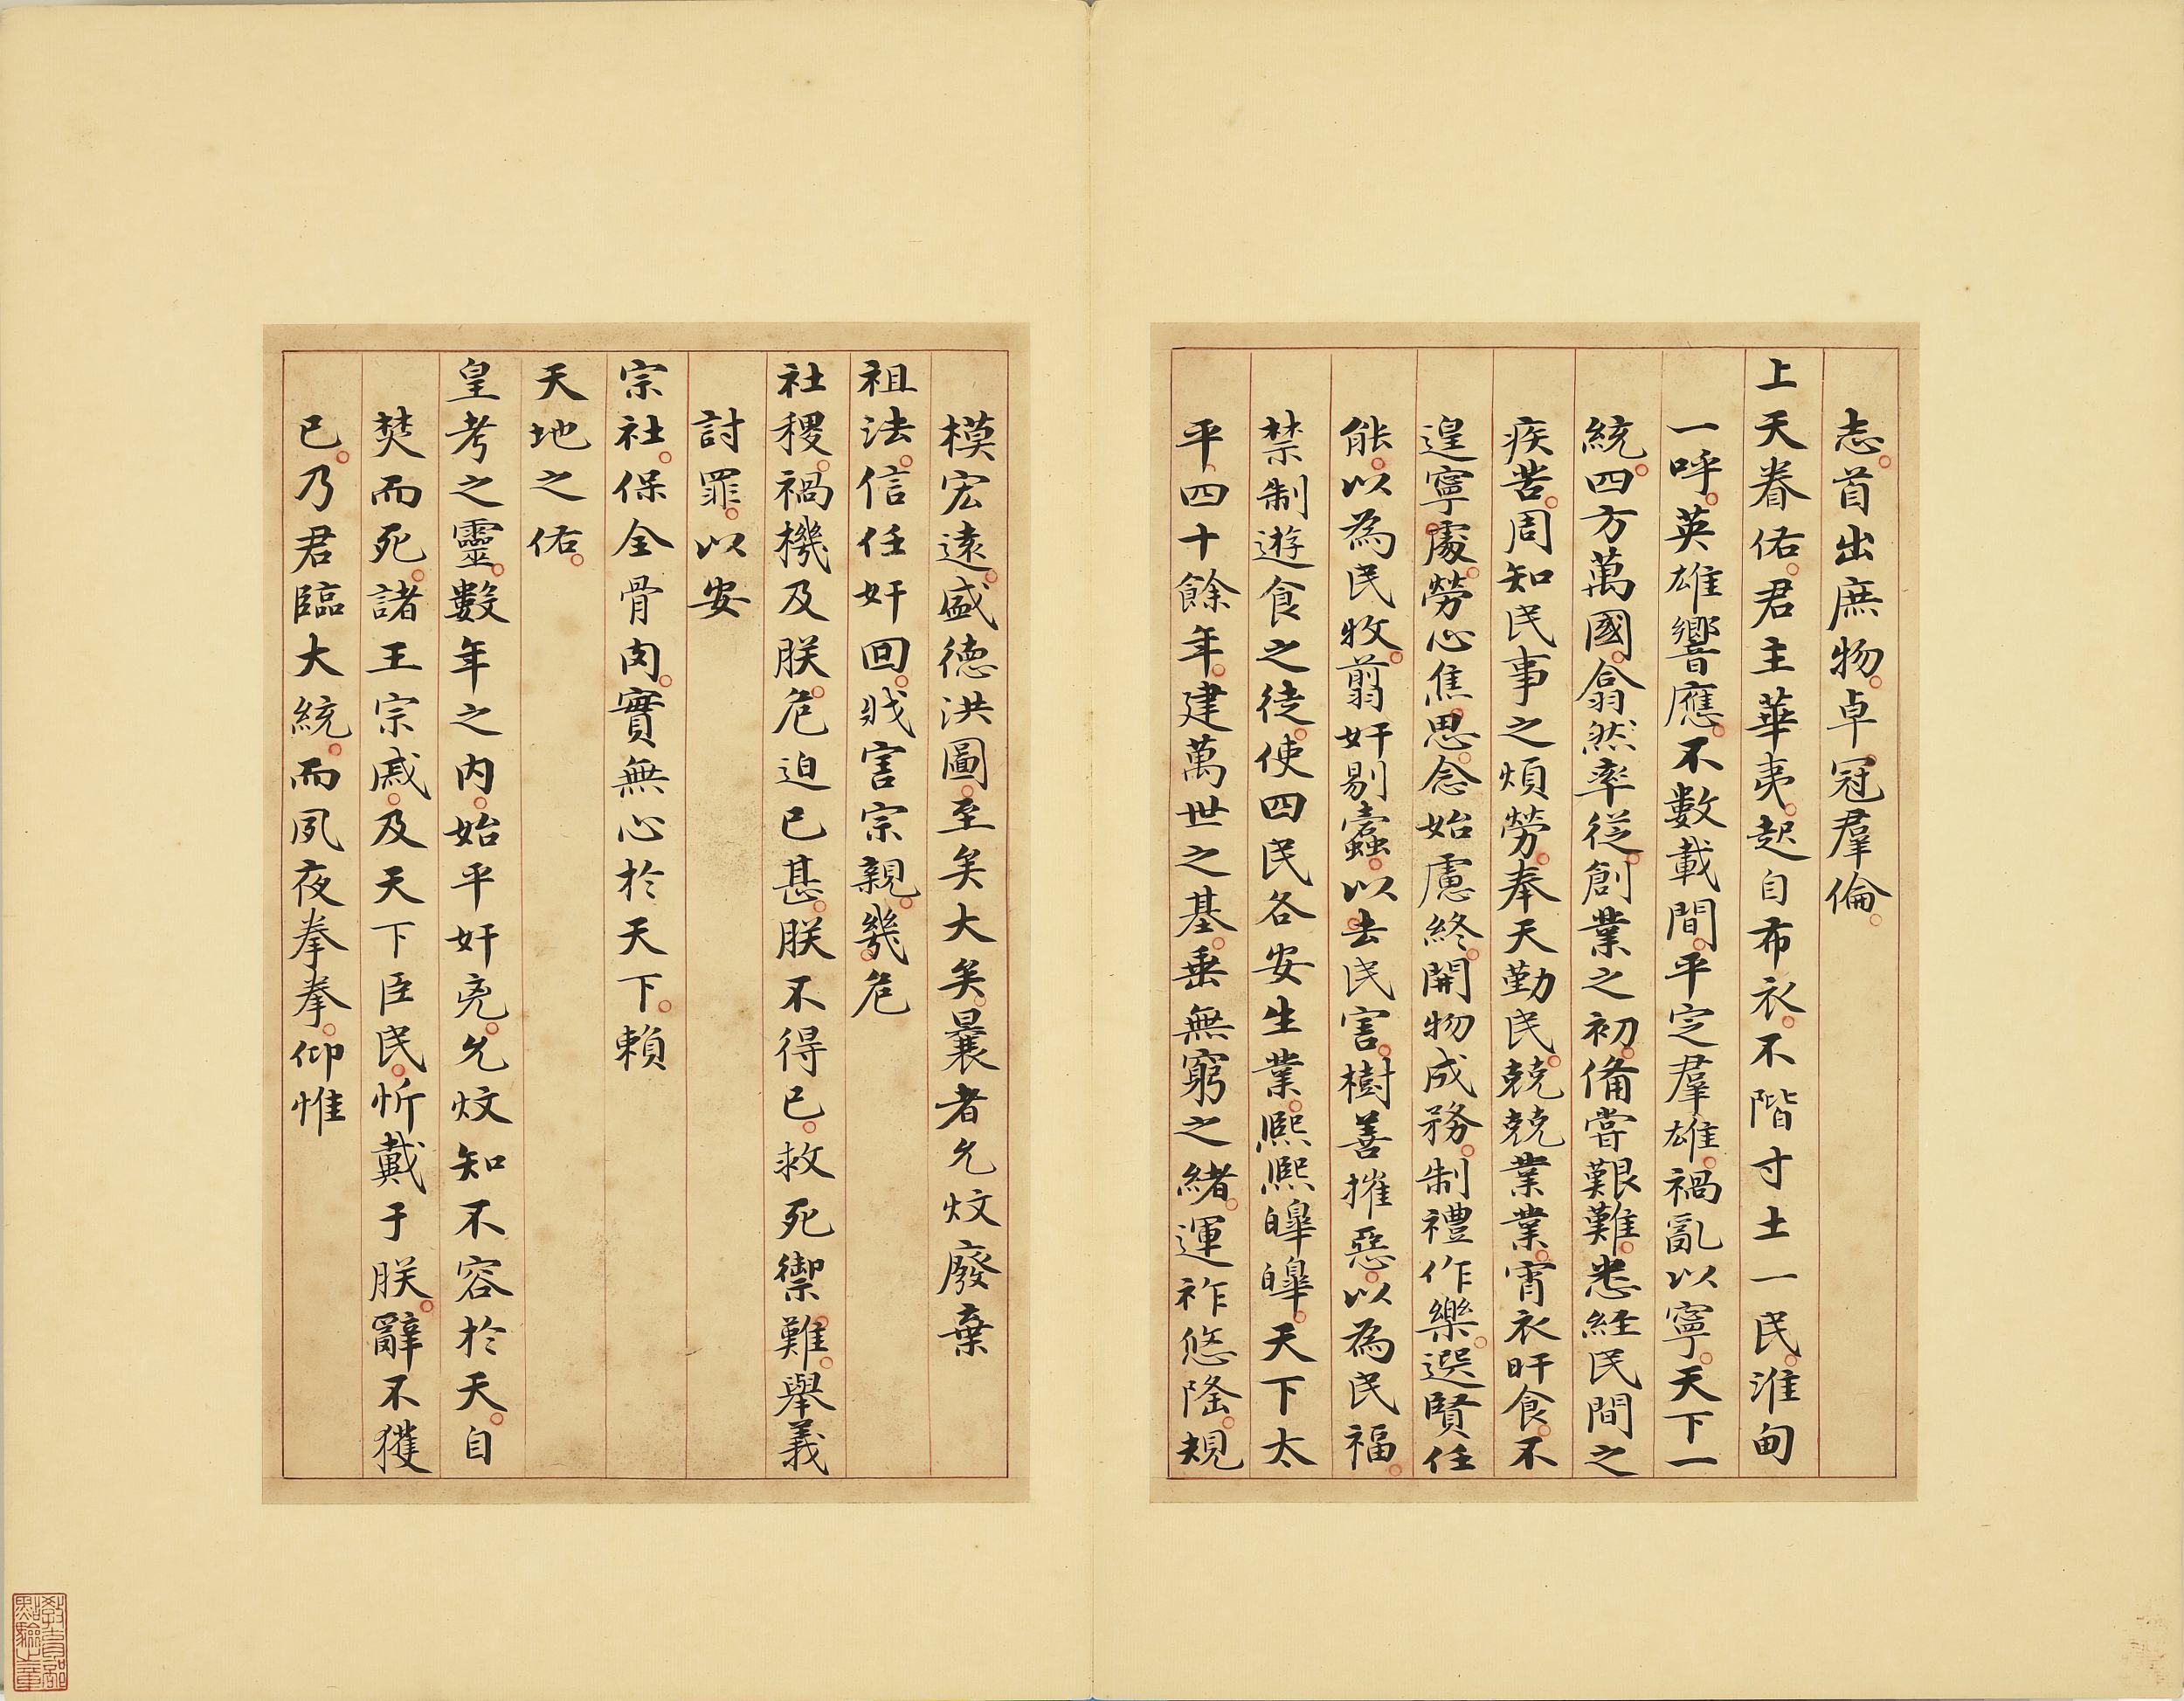 志首出庶物卓冠羣倫
上天眷佑君主華夷起自布衣不階寸土一民淮甸
一呼英雄響應不數載間平定羣雄禍亂以寧天下一
統四方萬國翕然率從創業之初備嘗艱難悉經民間之
疾苦周知民事之煩勞奉天勤民兢兢業業宵衣旰食不
遑寧處勞心焦思念始慮終開物成務制禮作樂選賢任
能以為民牧翦奸剔蠹以去民害樹善摧惡以為民福
禁制遊食之徒使四民各安生業熈熈皥皥天下太
平四十餘年建萬世之基垂無窮之緒運祚悠隆規
模宏遠盛德洪圖至矣大矣曩者允炆廢棄
祖法信任奸回戕害宗親幾危
社稷禍機及朕危迫已甚朕不得已救死禦難舉義
討罪以安
宗社保全骨肉實無心於天下賴
天地之佑
皇考之靈數年之內始平奸兇允炆知不容於天自
焚而死諸王宗戚及天下臣民忻戴于朕辭不獲
已乃君臨大統而夙夜拳拳仰惟
教育部
點驗之章